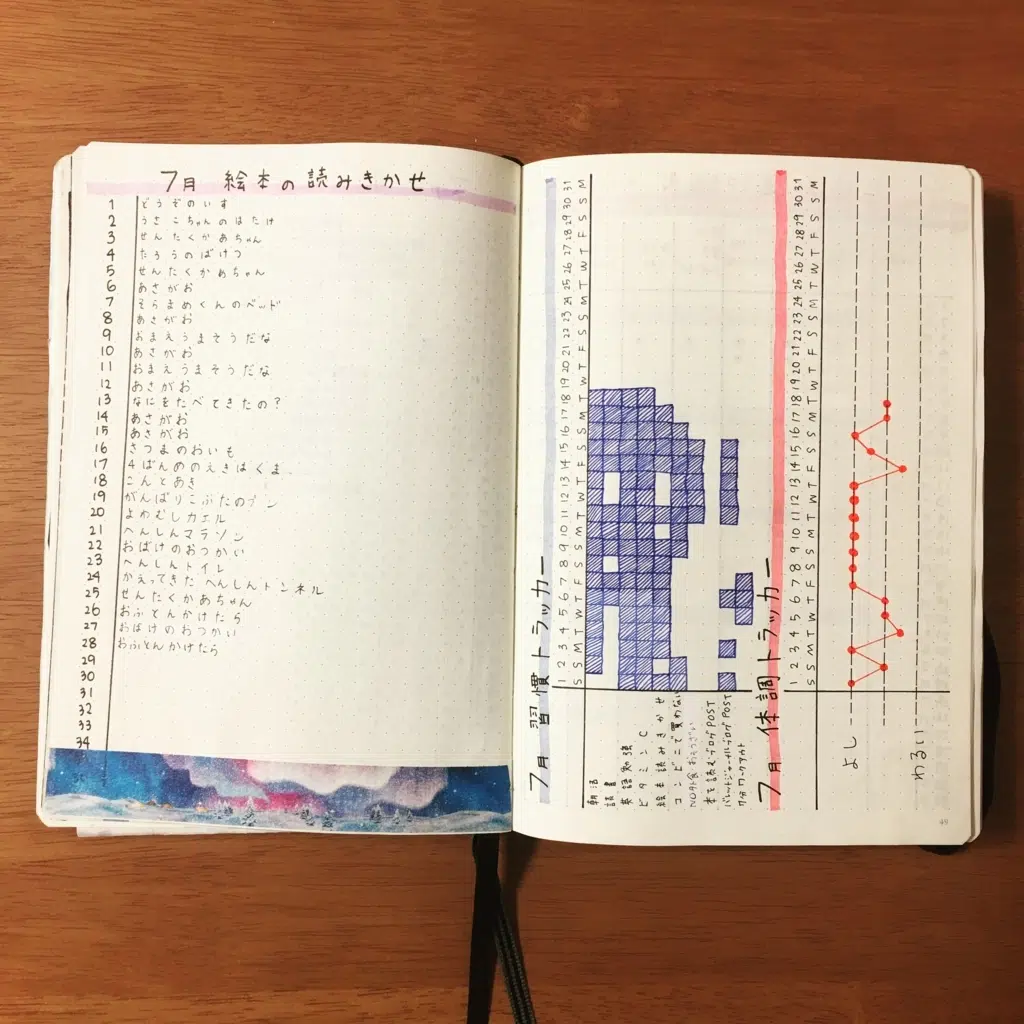 7月 絵本の読みきかせ
1 どうぞのいす
2 うさこちゃんのはたけ
3 せんたくかあちゃん
4 たろうのばけつ
5 せんたくかあちゃん
6 あさがお
7 そらまめくんのベッド
8 あさがお
9 おまえうまそうだな
10 あさがお
11 おまえうまそうだな
12 あさがお
13 なにをたべてきたの?
14 あさがお
15 あさがお
16 さつまのおいも
17 4ばんめのえきはくま
18 こんとあき
19 がんばりこぶたのブン
20 よわむしカエル
21 へんしんマラソン
22 おばけのおつかい
23 へんしんトイレ
24 かえってきた へんしんトンネル
25 せんたくかあちゃん
26 おふとんかけたら
27 おばけのおつかい
28 おふとんかけたら
29
30
31
32
33
34
7月 習慣トラッカー
1 2 3 4 5 6 7 8 9 10 11 12 13 14 15 16 17 18 19 20 21 22 23 24 25 26 27 28 29 30 31
S S M T W T F S S M T W T F S S M T W T F S S M T W T F S S M
朝活
読書
英語勉強
ビタミンC
絵本読みきかせ
コンビニで買わない
NO外食 おそうざい
本を読む・ブログPOST
バレットジャーナルブログPOST
7分ワークアウト
7月 体調トラッカー
1 2 3 4 5 6 7 8 9 10 11 12 13 14 15 16 17 18 19 20 21 22 23 24 25 26 27 28 29 30 31
S S M T W T F S S M T W T F S S M T W T F S S M T W T F S S M
よし
わるい